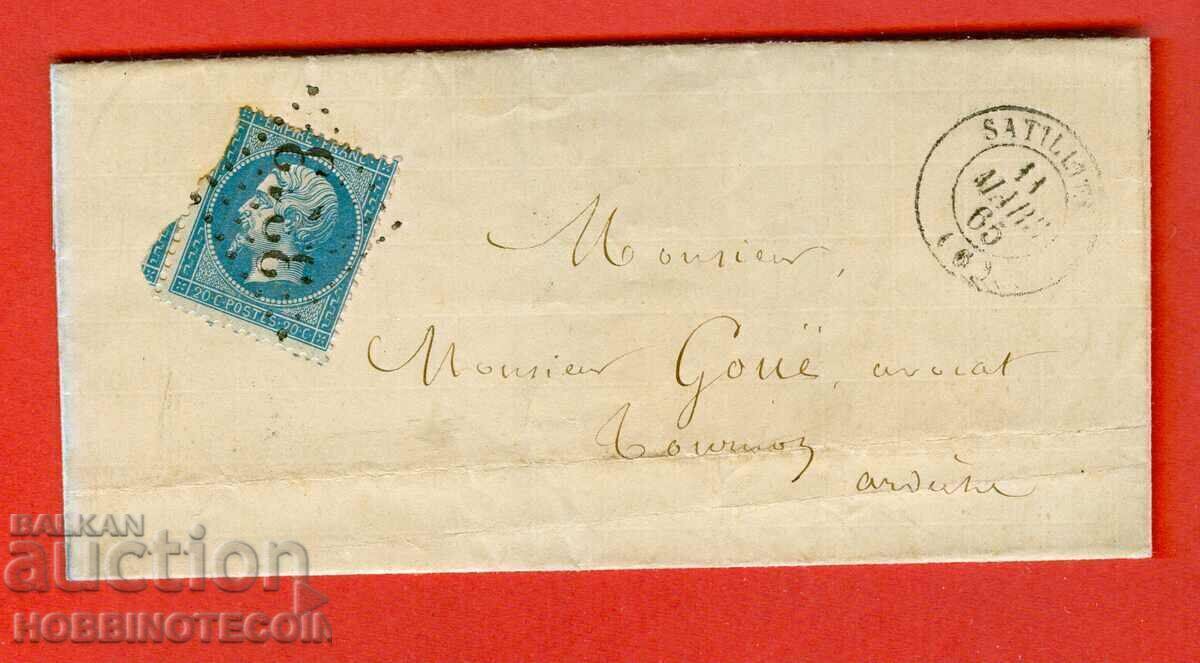 EMPIRE FRANC
20·C·POSTES·20·C
SATILLIEU
11
MARS
65
(6
Monsieur,
Monsieur Gouë, avocat
Tournon
ardèche
BALKAN
auction
HOBBINOTECOIN